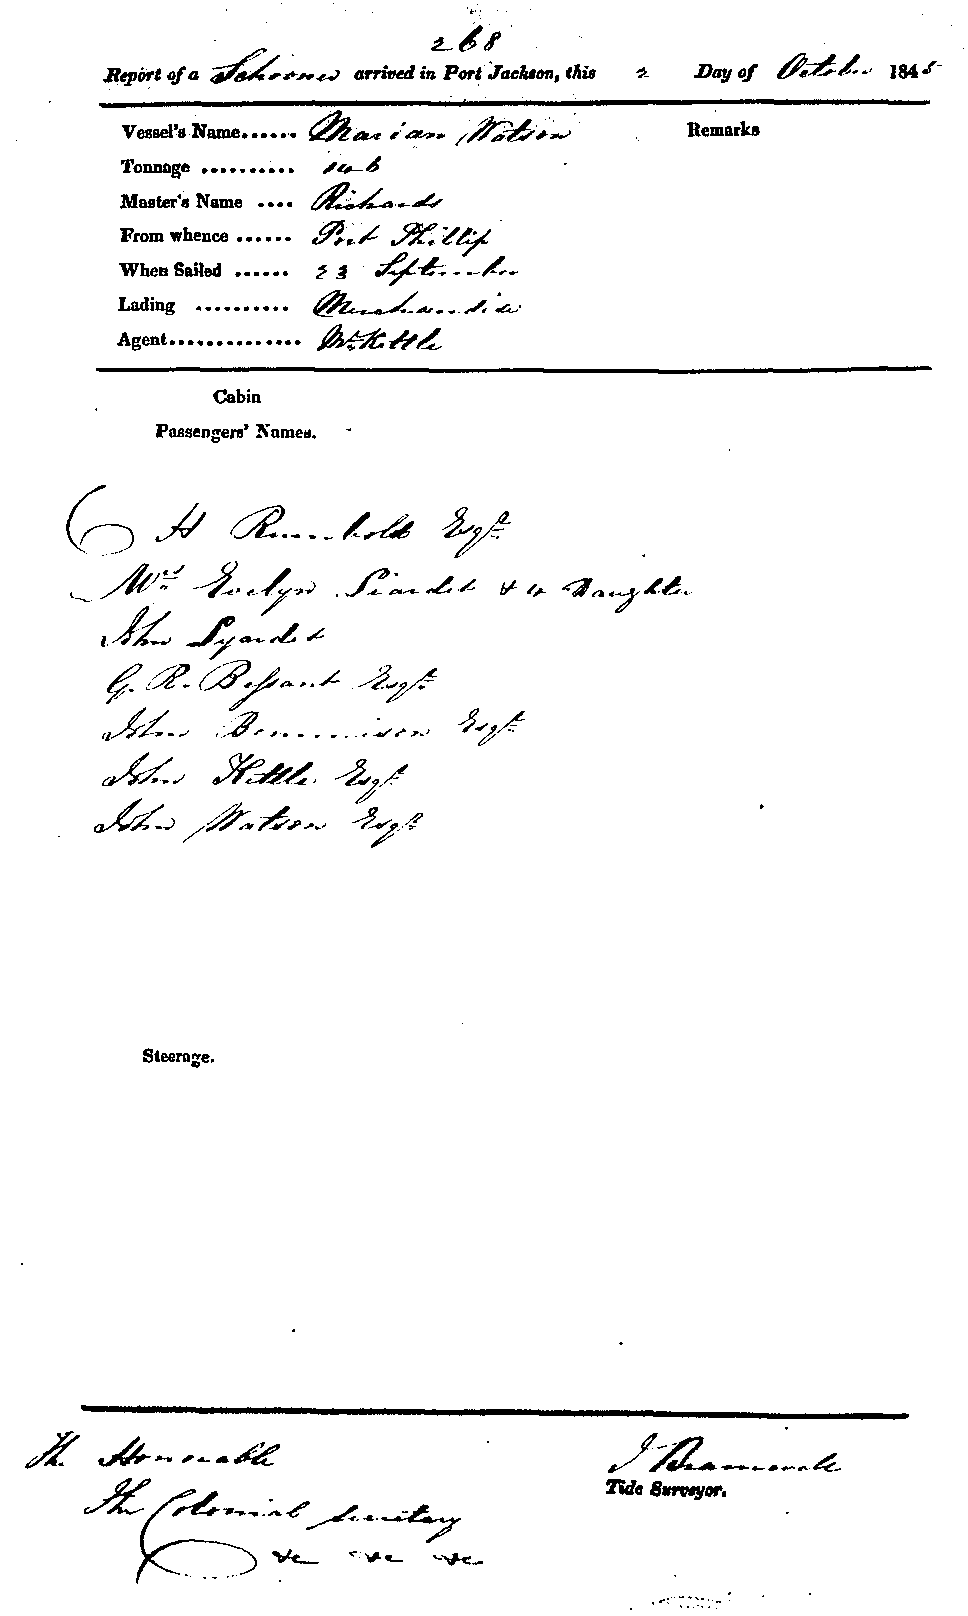 268
Report of a Schooner arrived in Port Jackson, this 2 Day of October 1845
Vessel's Name...... Marian Watson Remarks
Tonnage .......... 146
Master's Name .... Richards
From whence ...... Port Phillip
When Sailed ...... 23 September
Lading .......... Merchandise
Agent.............. Mr. Kettle
Cabin
Passengers' Names.
H Rumbold Esqr.
Mrs Evelyn Liardet & 4 Daughter
John Lyardet
G. R. Bessant Esqr.
John Esqr.
John Kettle Esqr
John Watson Esqr
Steerage.
The Honorable
The Colonial Secretary
&c &c &c
J
Tide Surveyor.